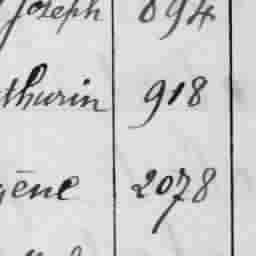 Joseph 894
thurin 918
gène 2078